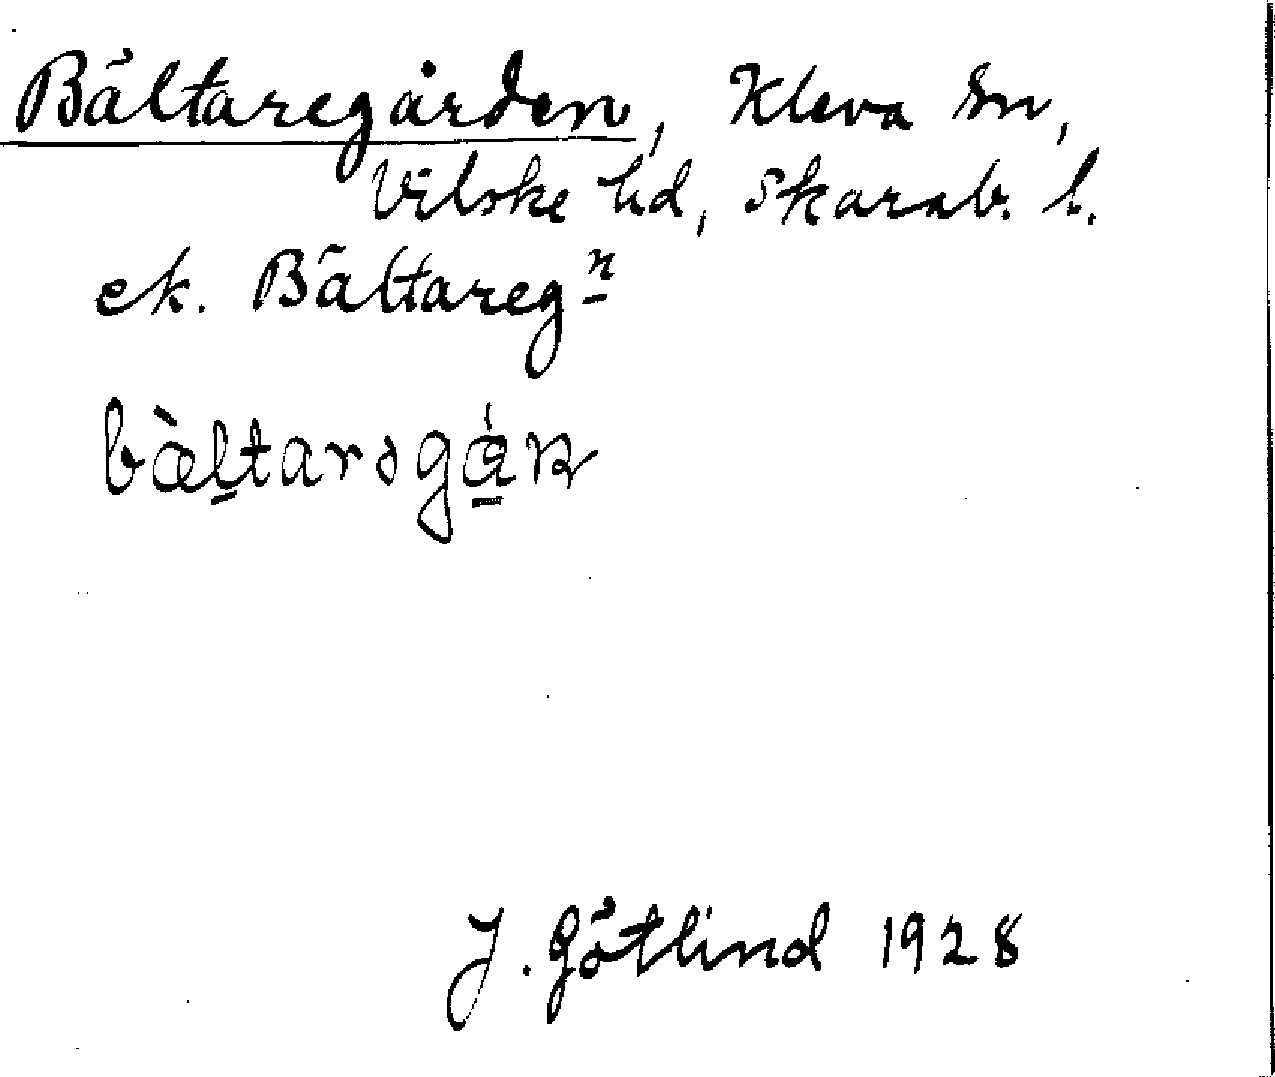 Bältaregården, Kleva sn,
Vilske hd, Skarab. l.
ek. Bältareg n
bæ̀l̠tarəgá̠n
J. Götlind 1928